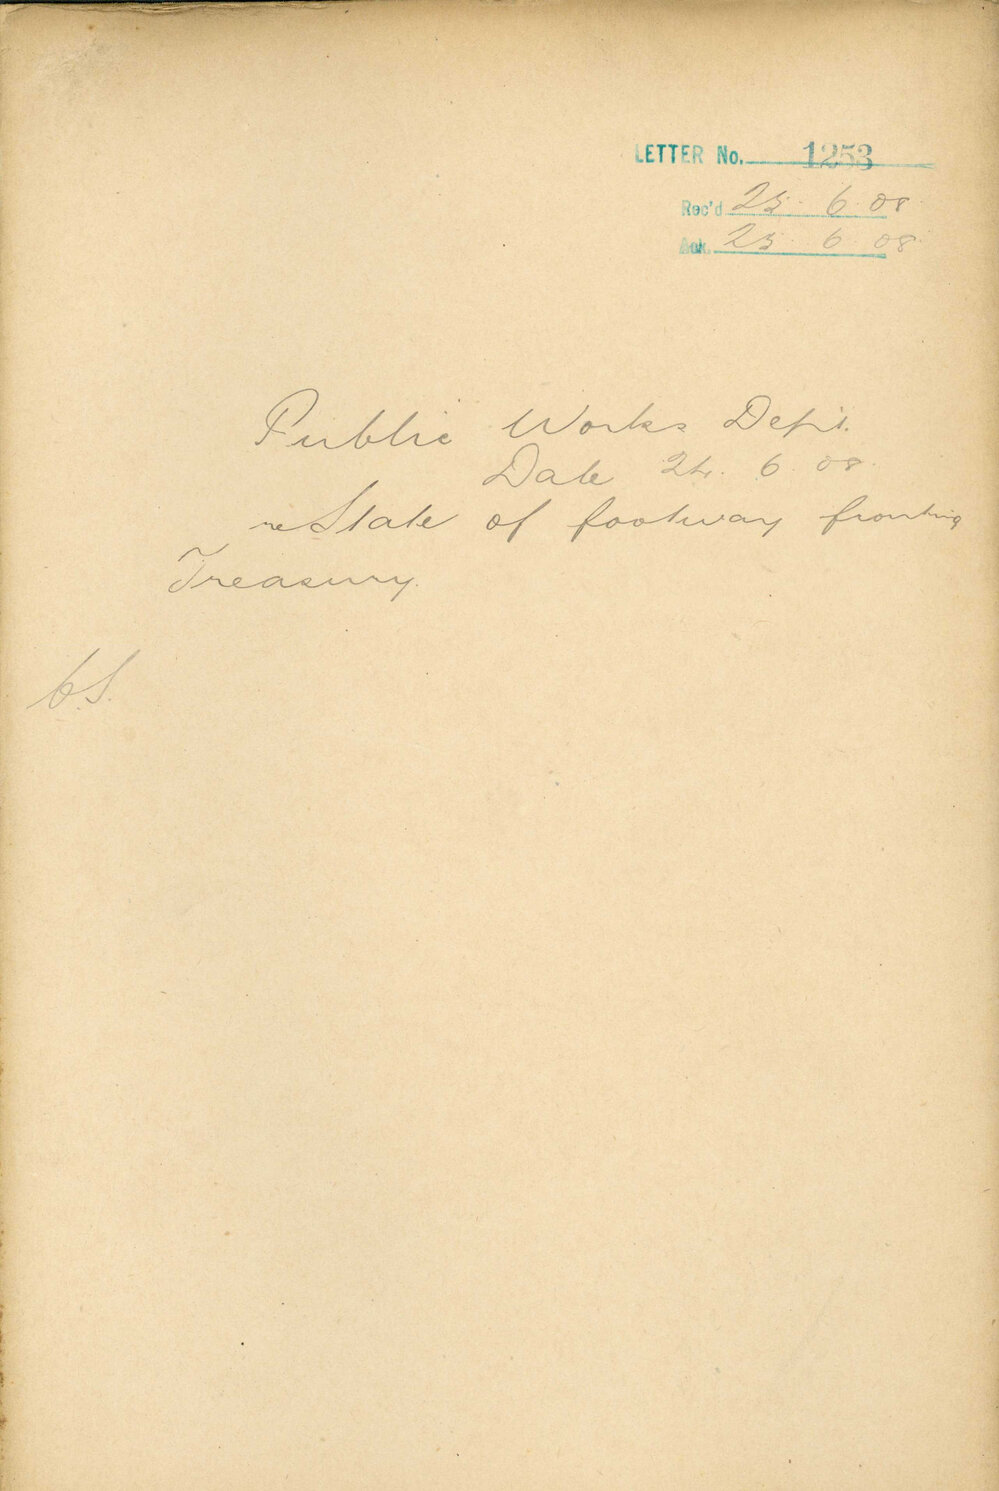 LETTER No. 1253
Rec'd 25. 6. 08.
Ack. 25. 6. 08.
Public Works Dept.
Date 24. 6. 08.
re State of footway fronting
Treasury.
C.S.